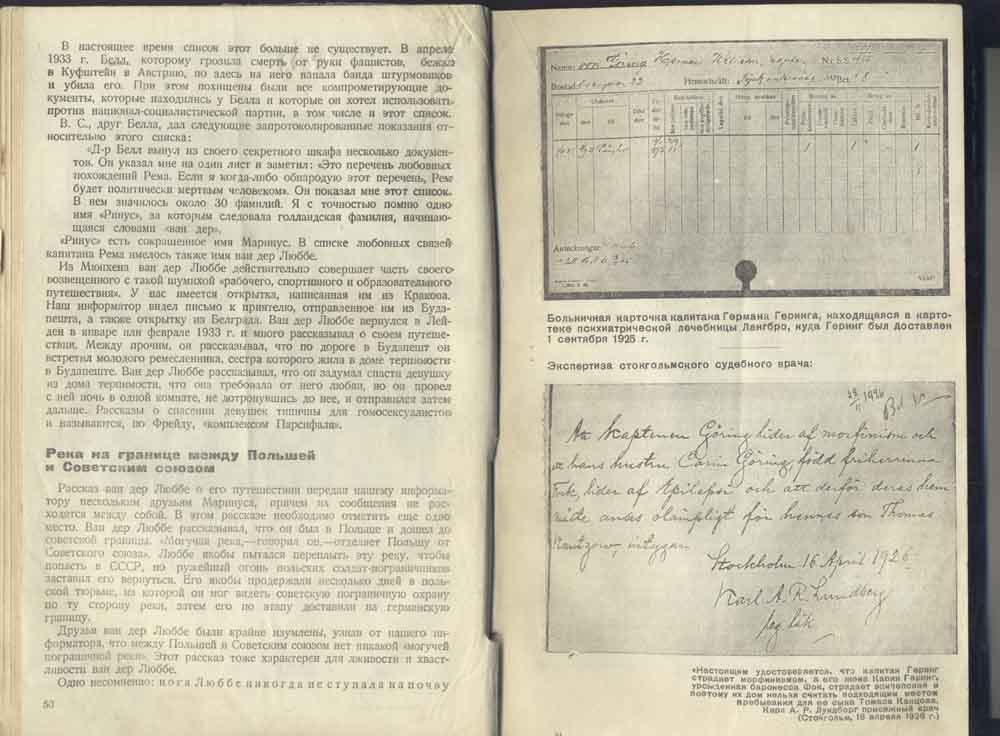 В настоящее время список этот больше не существует. В апреле
1933 г. Белл, которому грозила смерть от руки фашистов, бежал
в Куфштейн в Австрию, но здесь на него напала банда штурмовиков
и убила его. При этом похищены были все компрометирующие до-
кументы, которые находились у Белла и которые он хотел использовать
против национал-социалистической партии, в том числе и этот список.
В. С., друг Белла, дал следующие запротоколированные показания от-
носительно этого списка:
«Д-р Белл вынул из своего секретного шкафа несколько докумен-
тов. Он указал мне на один лист и заметил: «Это перечень любовных
похождений Рема. Если я когда-либо обнародую этот перечень, Рем
будет политически мертвым человеком». Он показал мне этот список.
В нем значилось около 30 фамилий. Я с точностью помню одно
имя «Ринус», за которым следовала голландская фамилия, начинаю-
щаяся словами «ван дер».
«Ринус» есть сокращенное имя Маринус. В списке любовных связей
капитана Рема имелось также имя ван дер Люббе.
Из Мюнхена ван дер Люббе действительно совершает часть своего
возвещенного с такой шумихой «рабочего, спортивного и образовательного
путешествия». У нас имеется открытка, написанная им из Кракова.
Наш информатор видел письмо к приятелю, отправленное им из Буда-
пешта, а также открытку из Белграда. Ван дер Люббе вернулся в Лей-
ден в январе или феврале 1933 г. и много рассказывал о своем путеше-
ствии. Между прочим, он рассказывал, что по дороге в Будапешт он
встретил молодого ремесленника, сестра которого жила в доме терпимости
в Будапеште. Ван дер Люббе рассказывал, что он задумал спасти девушку
из дома терпимости, что она требовала от него любви, но он провел
с ней ночь в одной комнате, не дотронувшись до нее, и отправился затем
дальше. Рассказы о спасении девушек типичны для гомосексуалистов
и называются, по Фрейду, «комплексом Парсифаля».
Река на границе между Польшей
и Советским союзом
Рассказ ван дер Люббе о его путешествии передал нашему информа-
тору нескольким друзьям Маринуса, причем их сообщения не рас-
ходятся между собой. В этом рассказе необходимо отметить еще одно
место. Ван дер Люббе рассказывал, что он был в Польше и дошел до
советской границы. «Могучая река,—говорил он,—отделяет Польшу от
Советского союза». Люббе якобы пытался переплыть эту реку, чтобы
попасть в СССР, но ружейный огонь польских солдат-пограничников
заставил его вернуться. Его якобы продержали несколько дней в поль-
ской тюрьме, из которой он мог видеть советскую пограничную охрану
по ту сторону реки, затем его по этапу доставили на германскую
границу.
Друзья ван дер Люббе были крайне изумлены, узнав от нашего ин-
форматора, что между Польшей и Советским союзом нет никакой «могучей
пограничной реки». Этот рассказ тоже характерен для лживости и хваст-
ливости ван дер Люббе.
Одно несомненно: нога Люббе никогда не ступала на почву
50
Namn: von Göring Herman
Bostad
Hemort
Anteckningar
Больничная карточка капитана Германа Геринга, находящаяся в карто-
теке психиатрической лечебницы Лангбро, куда Геринг был доставлен
1 сентября 1925 г.
Экспертиза стокгольмского судебного врача:
Att Kaptenen Göring lider af morfinism och
att hans hustru Carin Göring, född friherrinna
Fock, lider af Epilepsi och att derför deras hem
måste anses olämpligt för hennes son Thomas
Kantzow intygas
Stockholm 16 April 1926
Karl A. R. Lundberg
leg läk
«Настоящим удостоверяется, что капитан Геринг
страдает морфинизмом, а его жена Карин Геринг,
урожденная баронесса Фок, страдает эпилепсией и
поэтому их дом нельзя считать подходящим местом
пребывания для ее сына Томаса Канцова.
Карл А. Р. Лундберг присяжный врач
(Стокгольм, 16 апреля 1926 г.)